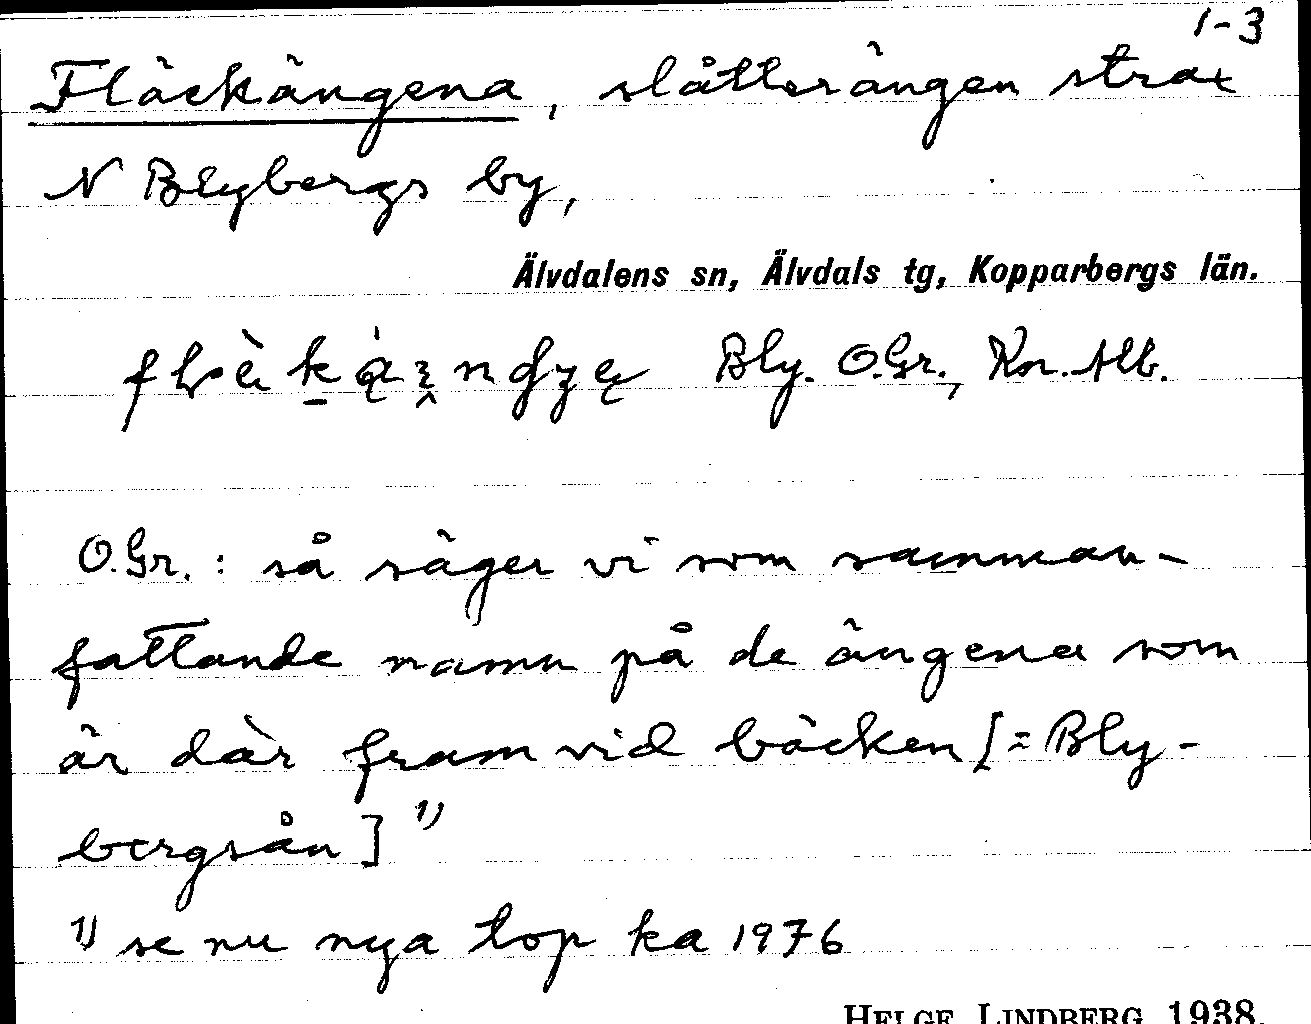 1-3
Fläckängena, slåtterängen strax
N Blybergs by,
Älvdalens sn, Älvdals tg, Kopparbergs län.
Bly. O.Gr., Kn. Alb.
O.Gr. : så säger vi som samman-
fattande namn på de ängena som
är där fram vid bäcken [= Bly-
bergsån] 1)
1) se nu nya top ka 1976
HELGE LINDBERG 1938.